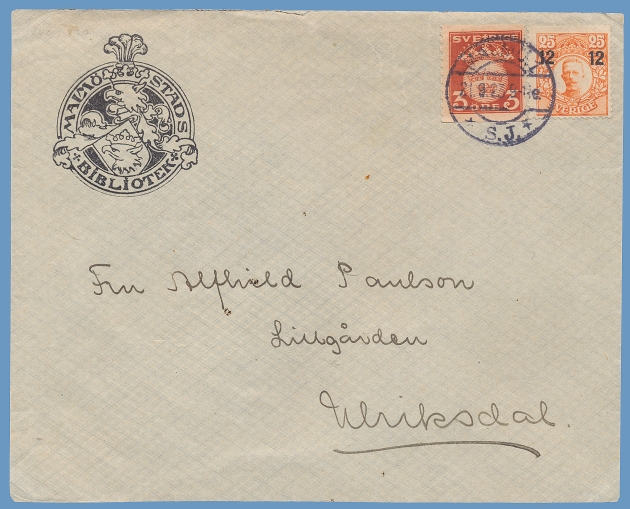 MALMÖ STADS
BIBLIOTEK
SVERIGE
5 ÖRE 5
25 25
12 12
SVERIGE
S.J.
Fru Alfhield Paulson
Lillgården
Ulriksdal.